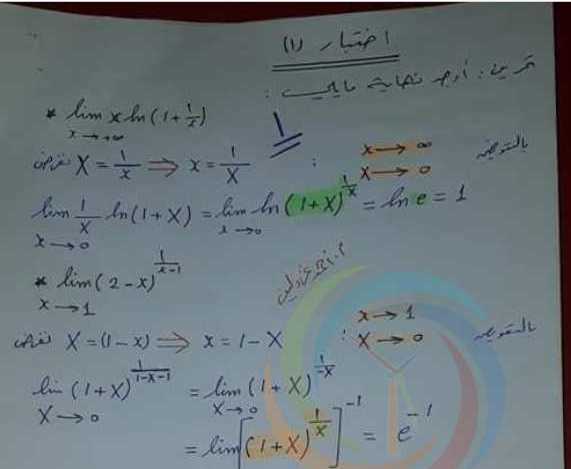 اختبار (1)
تمرين: أوجد نهاية مايلي:
* lim_{x→+∞} x ln(1+1/x)
1
نفرض X = 1/x ⟹ x = 1/X : x→∞ X→0 بالتعويض
lim_{x→0} 1/X ln(1+X) = lim_{x→0} ln(1+X)^{1/X} = ln e = 1
* lim_{x→1} (2-x)^{1/(x-1)}
نفرض X = (1-x) ⟹ x = 1-X : x→1 X→0 بالتعويض
lim_{X→0} (1+X)^{1/(1-X-1)} = lim_{X→0} (1+X)^{1/-X}
= lim [(1+X)^{1/X}]^{-1} = e^{-1}